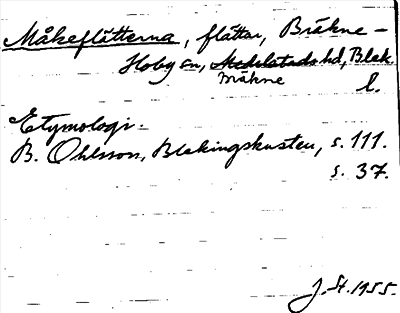 Måkeflätterna, flättar, Bräkne-
Hoby sn, Medelstads hd, Blek.
Bräkne l.
Etymologi.
B. Ohlsson, Blekingskusten, s. 111.
s. 37.
J. St. 1955.